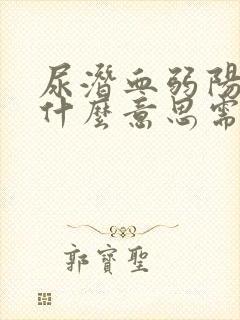 尿潛血弱陽
什麼意思需
郭寶聖